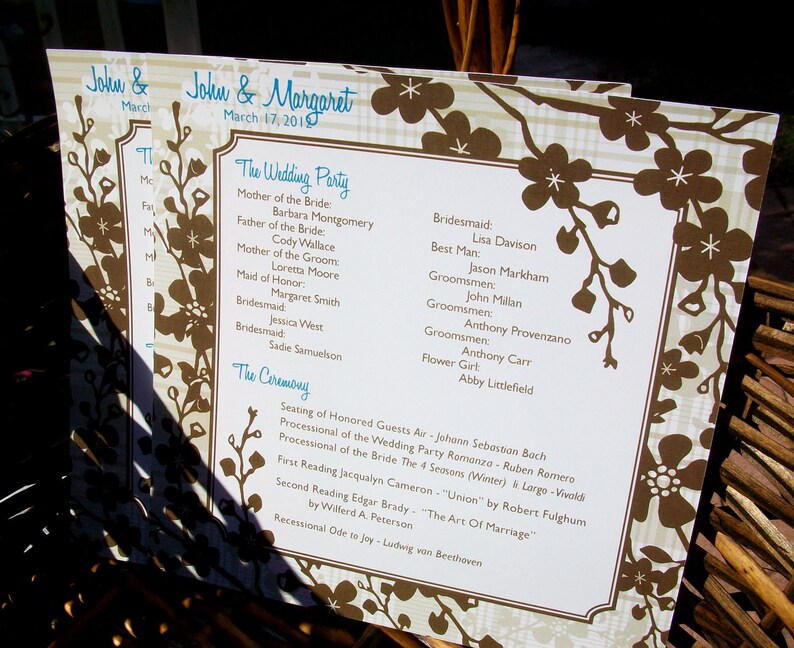 John & Margaret
March 17, 2012
The Wedding Party
Mother of the Bride:
Barbara Montgomery
Father of the Bride:
Cody Wallace
Mother of the Groom:
Loretta Moore
Maid of Honor:
Margaret Smith
Bridesmaid:
Jessica West
Bridesmaid:
Sadie Samuelson
Bridesmaid:
Lisa Davison
Best Man:
Jason Markham
Groomsmen:
John Millan
Groomsmen:
Anthony Provenzano
Groomsmen:
Anthony Carr
Flower Girl:
Abby Littlefield
The Ceremony
Seating of Honored Guests Air - Johann Sebastian Bach
Processional of the Wedding Party Romanza - Ruben Romero
Processional of the Bride The 4 Seasons (Winter) Ii. Largo - Vivaldi
First Reading Jacqualyn Cameron - "Union" by Robert Fulghum
Second Reading Edgar Brady - "The Art Of Marriage"
by Wilferd A. Peterson
Recessional Ode to Joy - Ludwig van Beethoven
John &
March